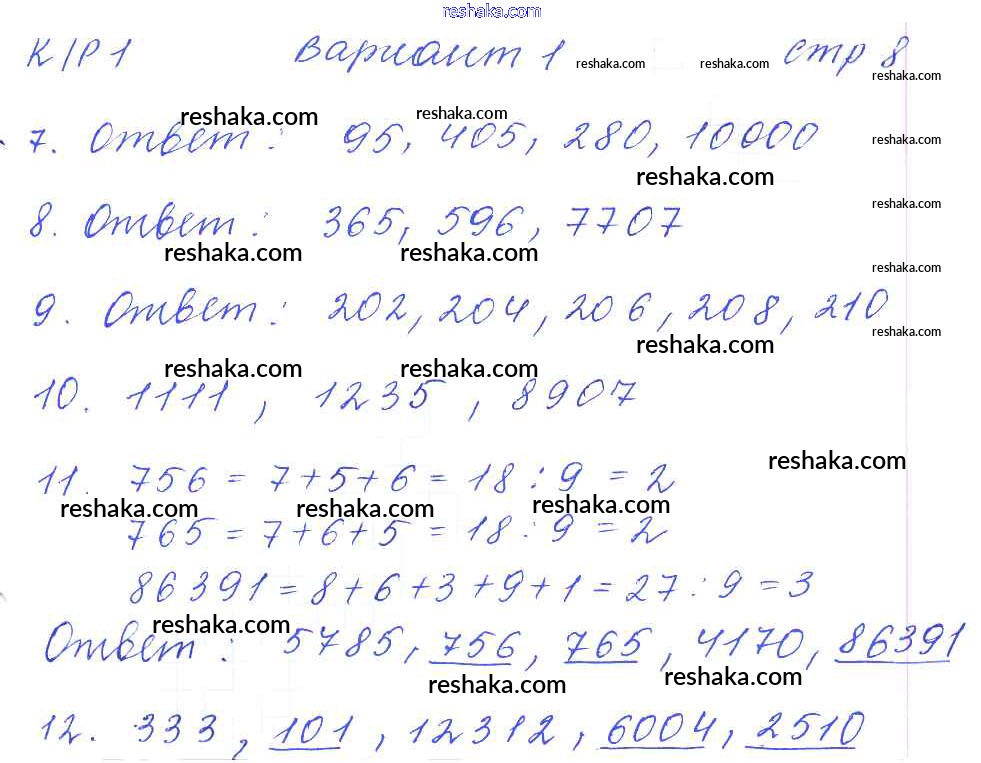 reshaka.com
К/Р 1 Вариант 1 reshaka.com reshaka.com стр 8
reshaka.com
reshaka.com reshaka.com
7. Ответ: 95, 405, 280, 10000 reshaka.com
reshaka.com
8. Ответ: 365, 596, 7707 reshaka.com
reshaka.com reshaka.com
reshaka.com
9. Ответ: 202, 204, 206, 208, 210
reshaka.com
reshaka.com
reshaka.com reshaka.com
10. 1111, 1235, 8907
reshaka.com
11. 756 = 7+5+6 = 18 : 9 = 2
reshaka.com reshaka.com reshaka.com
765 = 7+6+5 = 18 : 9 = 2
86391 = 8+6+3+9+1 = 27 : 9 = 3
reshaka.com
Ответ: 5785, 756, 765, 4170, 86391
reshaka.com reshaka.com
12. 333, 101, 12312, 6004, 2510